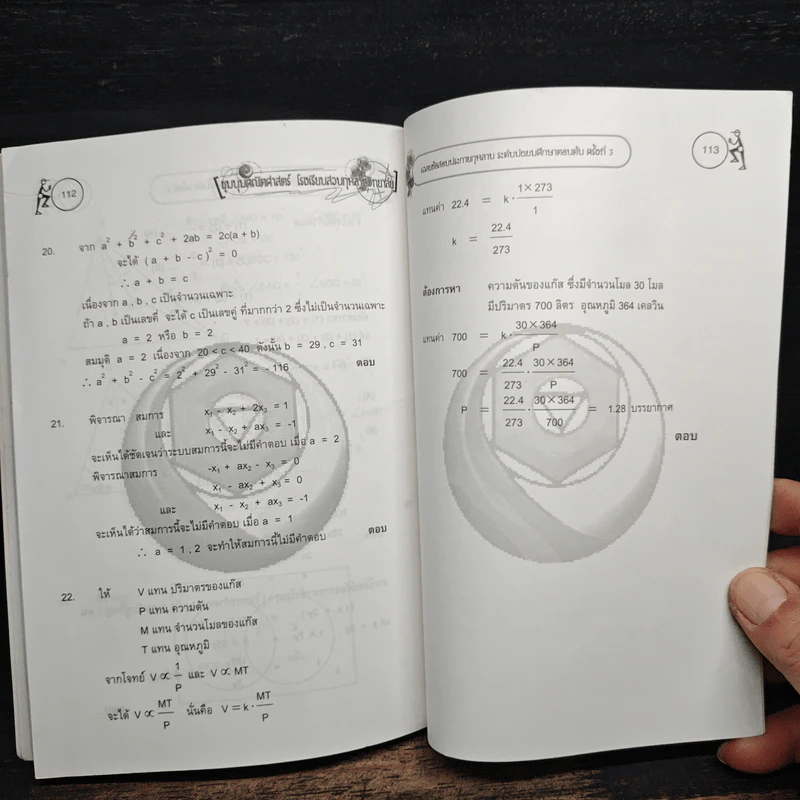 112
ชุมนุมคณิตศาสตร์ โรงเรียนสวนกุหลาบวิทยาลัย
20. จาก a² + b² + c² + 2ab = 2c(a + b)
จะได้ (a + b - c)² = 0
∴ a + b = c
เนื่องจาก a , b , c เป็นจำนวนเฉพาะ
ถ้า a , b เป็นเลขคี่ จะได้ c เป็นเลขคู่ ที่มากกว่า 2 ซึ่งไม่เป็นจำนวนเฉพาะ
a = 2 หรือ b = 2
สมมุติ a = 2 เนื่องจาก 20 < c < 40 ดังนั้น b = 29 , c = 31
∴ a² + b² - c² = 2² + 29² - 31² = - 116 ตอบ
21. พิจารณา สมการ x₁ - x₂ + 2x₃ = 1
และ x₁ - x₂ + ax₃ = -1
จะเห็นได้ชัดเจนว่าระบบสมการนี้จะไม่มีคำตอบ เมื่อ a = 2
พิจารณาสมการ -x₁ + ax₂ - x₃ = 0
x₁ - ax₂ + x₃ = 0
และ x₁ - x₂ + ax₃ = -1
จะเห็นได้ว่าสมการนี้จะไม่มีคำตอบ เมื่อ a = 1
∴ a = 1 , 2 จะทำให้สมการนี้ไม่มีคำตอบ ตอบ
22. ให้ V แทน ปริมาตรของแก๊ส
P แทน ความดัน
M แทน จำนวนโมลของแก๊ส
T แทน อุณหภูมิ
จากโจทย์ V ∝ 1/P และ V ∝ MT
จะได้ V ∝ MT/P นั่นคือ V = k · MT/P
เฉลยข้อสอบประกายกุหลาบ ระดับมัธยมศึกษาตอนต้น ครั้งที่ 3
113
แทนค่า 22.4 = k · 1 × 273/1
k = 22.4/273
ต้องการหา ความดันของแก๊ส ซึ่งมีจำนวนโมล 30 โมล
มีปริมาตร 700 ลิตร อุณหภูมิ 364 เคลวิน
แทนค่า 700 = k · 30 × 364/P
700 = 22.4/273 · 30 × 364/P
P = 22.4/273 · 30 × 364/700 = 1.28 บรรยากาศ
ตอบ